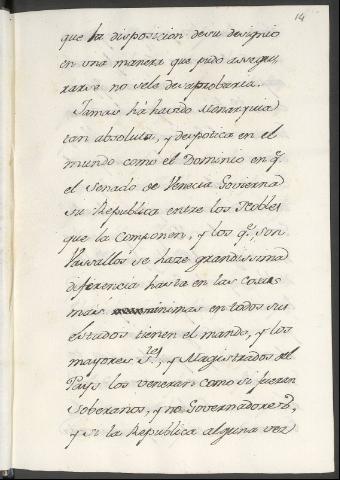 14
que la disposicion de su designio
en una manera que pudo assegu,
rarse no sele desaprobaria.
Jamas há havido Monarquia
tan absoluta, y despotica en el
mundo como el Dominio en q.
el Senado de Venecia Govierna
su Republica entre los Nobles
que la Componen, y los q. son
Vassallos se haze grandissima
diferencia hasta en las cosas
más minimas en todos sus
estados tienen el mando, y los
mayores S.res, y Magistrados del
Pays los veneran como si fueran
Soberanos, y no Governadores,
y si la Republica alguna vez